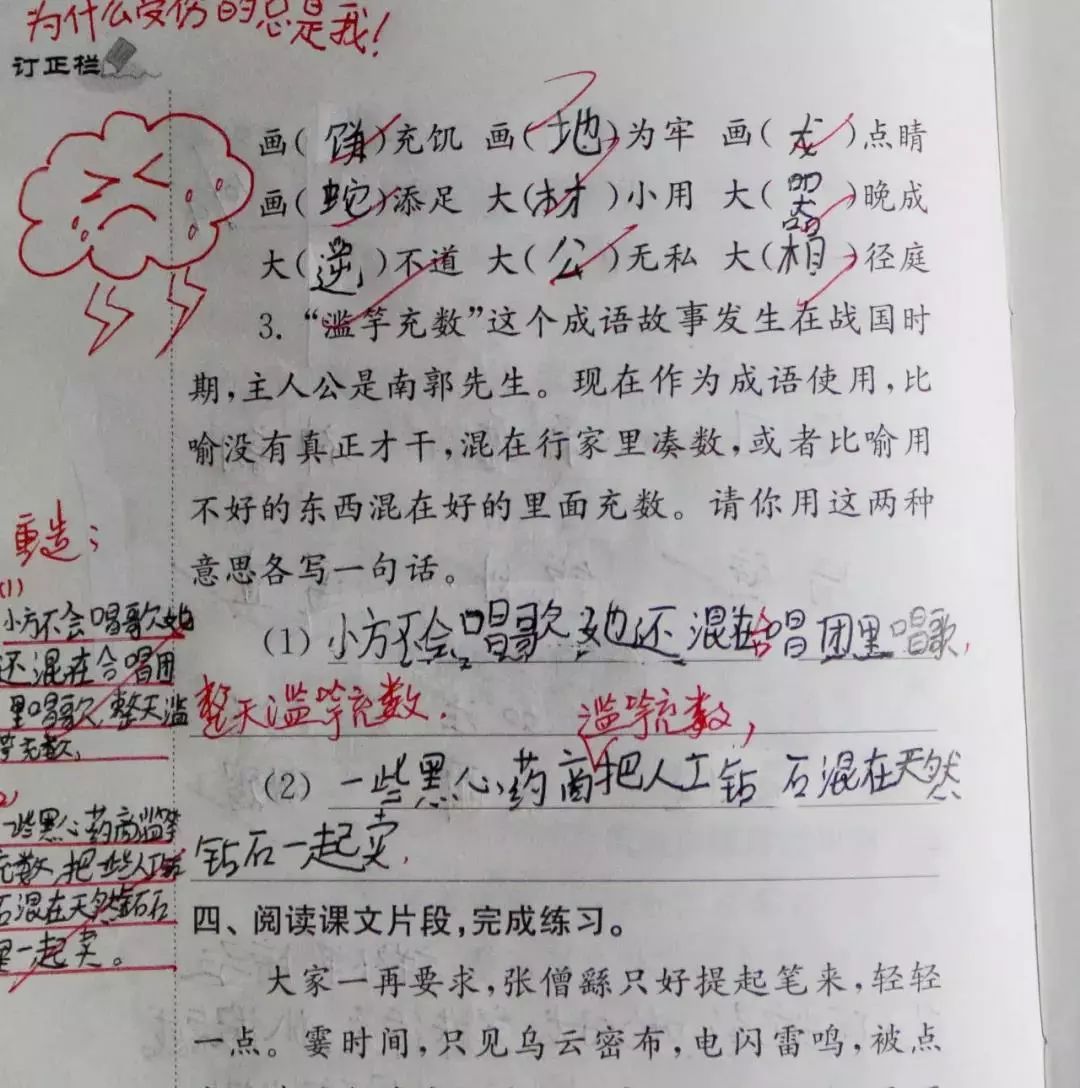 为什么受伤的总是我!
订正栏
画(饼)充饥 画(地)为牢 画(龙)点睛
画(蛇)添足 大(材)小用 大(器)晚成
大(逆)不道 大(公)无私 大(相)径庭
3.“滥竽充数”这个成语故事发生在战国时
期,主人公是南郭先生。现在作为成语使用,比
喻没有真正才干,混在行家里凑数,或者比喻用
不好的东西混在好的里面充数。请你用这两种
意思各写一句话。
(1) 小方不会唱歌她还混在合唱团里唱歌,
整天滥竽充数.
滥竽充数,
(2) 一些黑心药商把人工钻石混在天然
钻石一起卖.
重造;
(1)
小方不会唱歌她
还混在合唱团
里唱歌,整天滥
竽充数,
一些黑心药商滥竽
充数,把些人工钻
石混在天然钻石
里一起卖。
四、阅读课文片段,完成练习。
大家一再要求,张僧繇只好提起笔来,轻轻
一点。霎时间,只见乌云密布,电闪雷鸣,被点